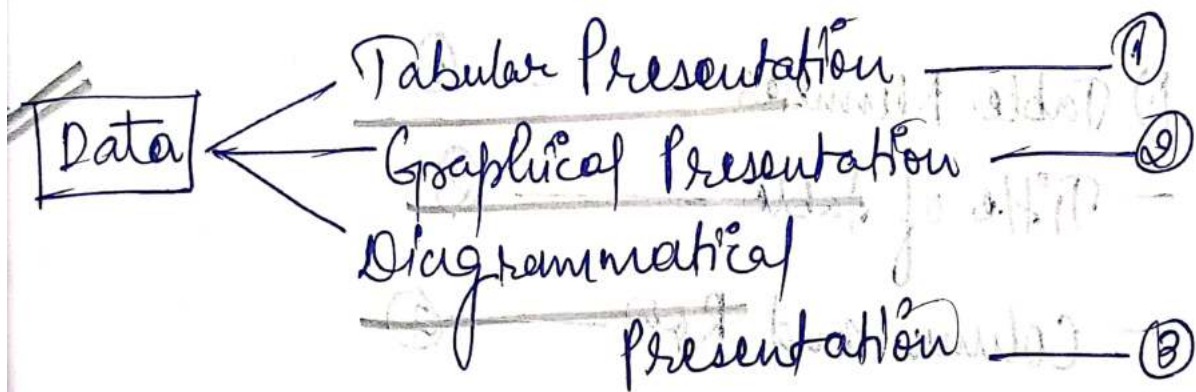 Tabular Presentation ①
Data Graphical Presentation ②
Diagrammatical
Presentation ③